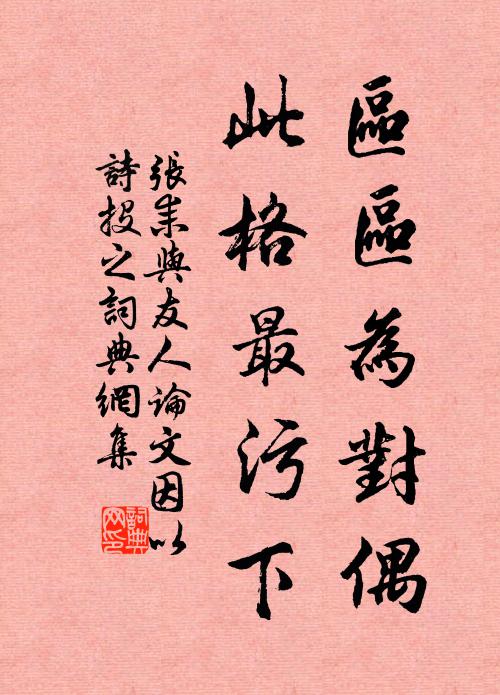 區區為對偶
此格最污下
張耒與友人論文因以
詩投之詞典網集
詞典
网印